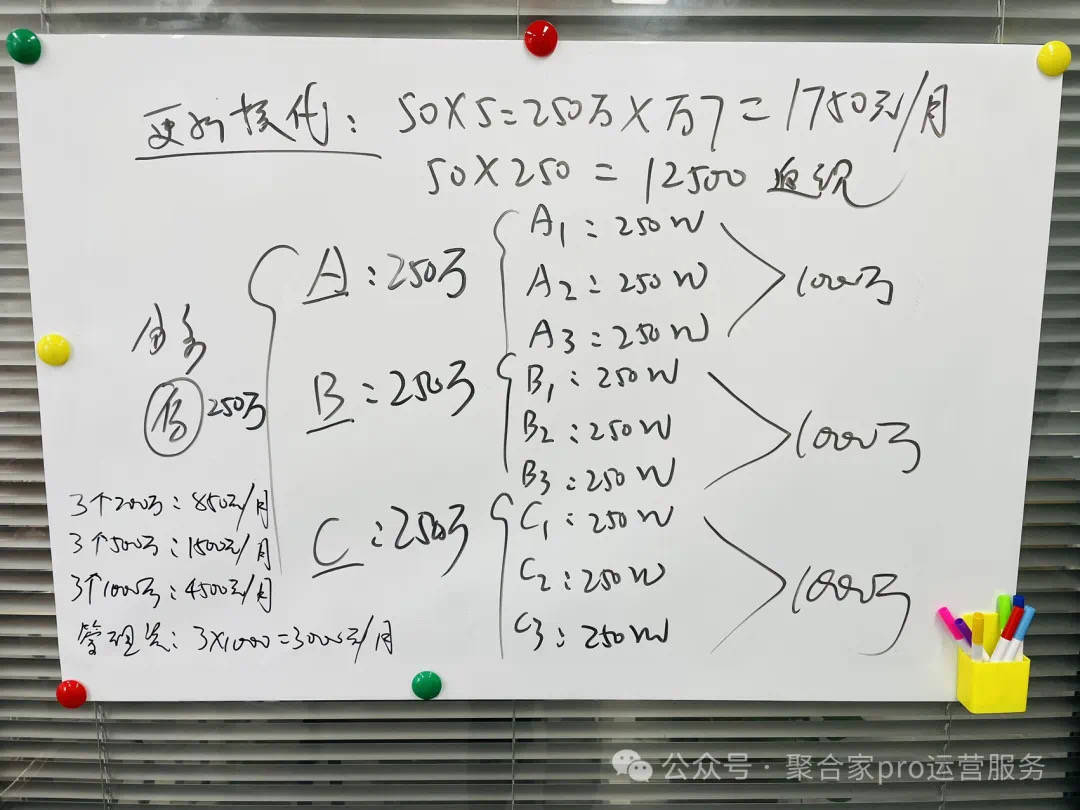 更新模式: 50×5=250万×万7=1750元/月
50×250=12500 返现
A:250万
A1:250W
A2:250W
A3:250W
1000万
250万
B:250万
B1:250W
B2:250W
B3:250W
1000万
C:250万
C1:250W
C2:250W
C3:250W
1000万
3个200万:850元/月
3个500万:1500元/月
3个1000万:4500元/月
管理奖:3×1000=3000元/月
公众号·聚合家pro运营服务